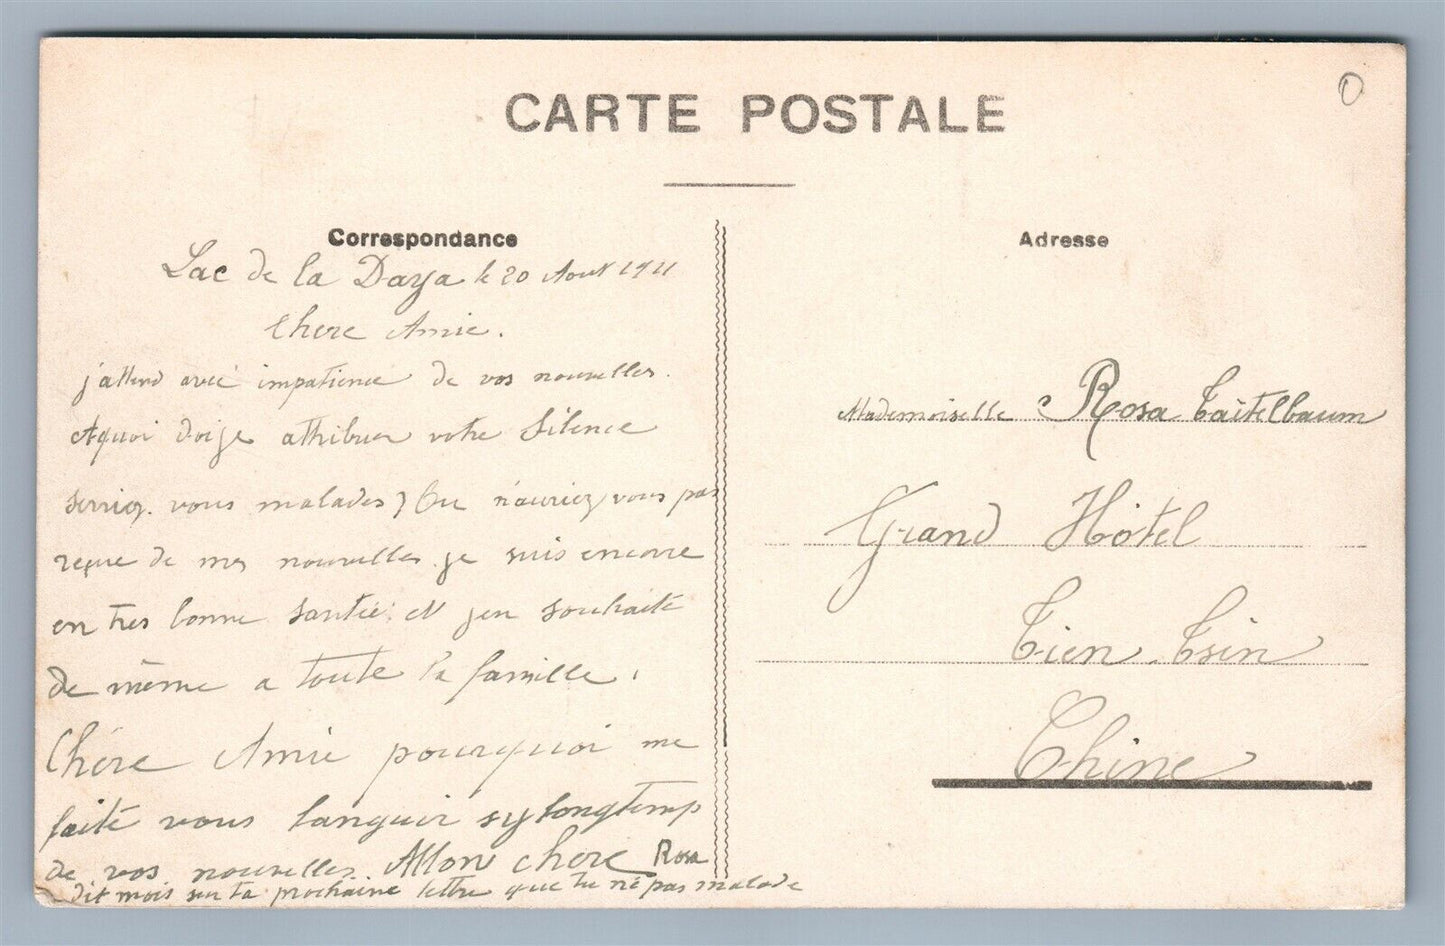 CARTE POSTALE
Correspondance
Lac de la Daya le 20 Aout 1911
Chere Amie.
j'attend avec impatience de vos nouvelles.
Aquoi doige attribuer votre Silence
serriez. vous malades, Ou n'auriez vous pas
reçue de mes nouvelles je suis encore
en tres bonne Santée. et jen souhaite
de même a toute la famille.
Chére Amie pourquoi me
faite vous languir sy longtemp
de vos nouvelles. Allon chere Rosa
dit mois sur ta prochaine lettre que tu né pas malade
Adresse
Mademoiselle Rosa Taitelbaum
Grand Hôtel
Tien Tsin
Chine